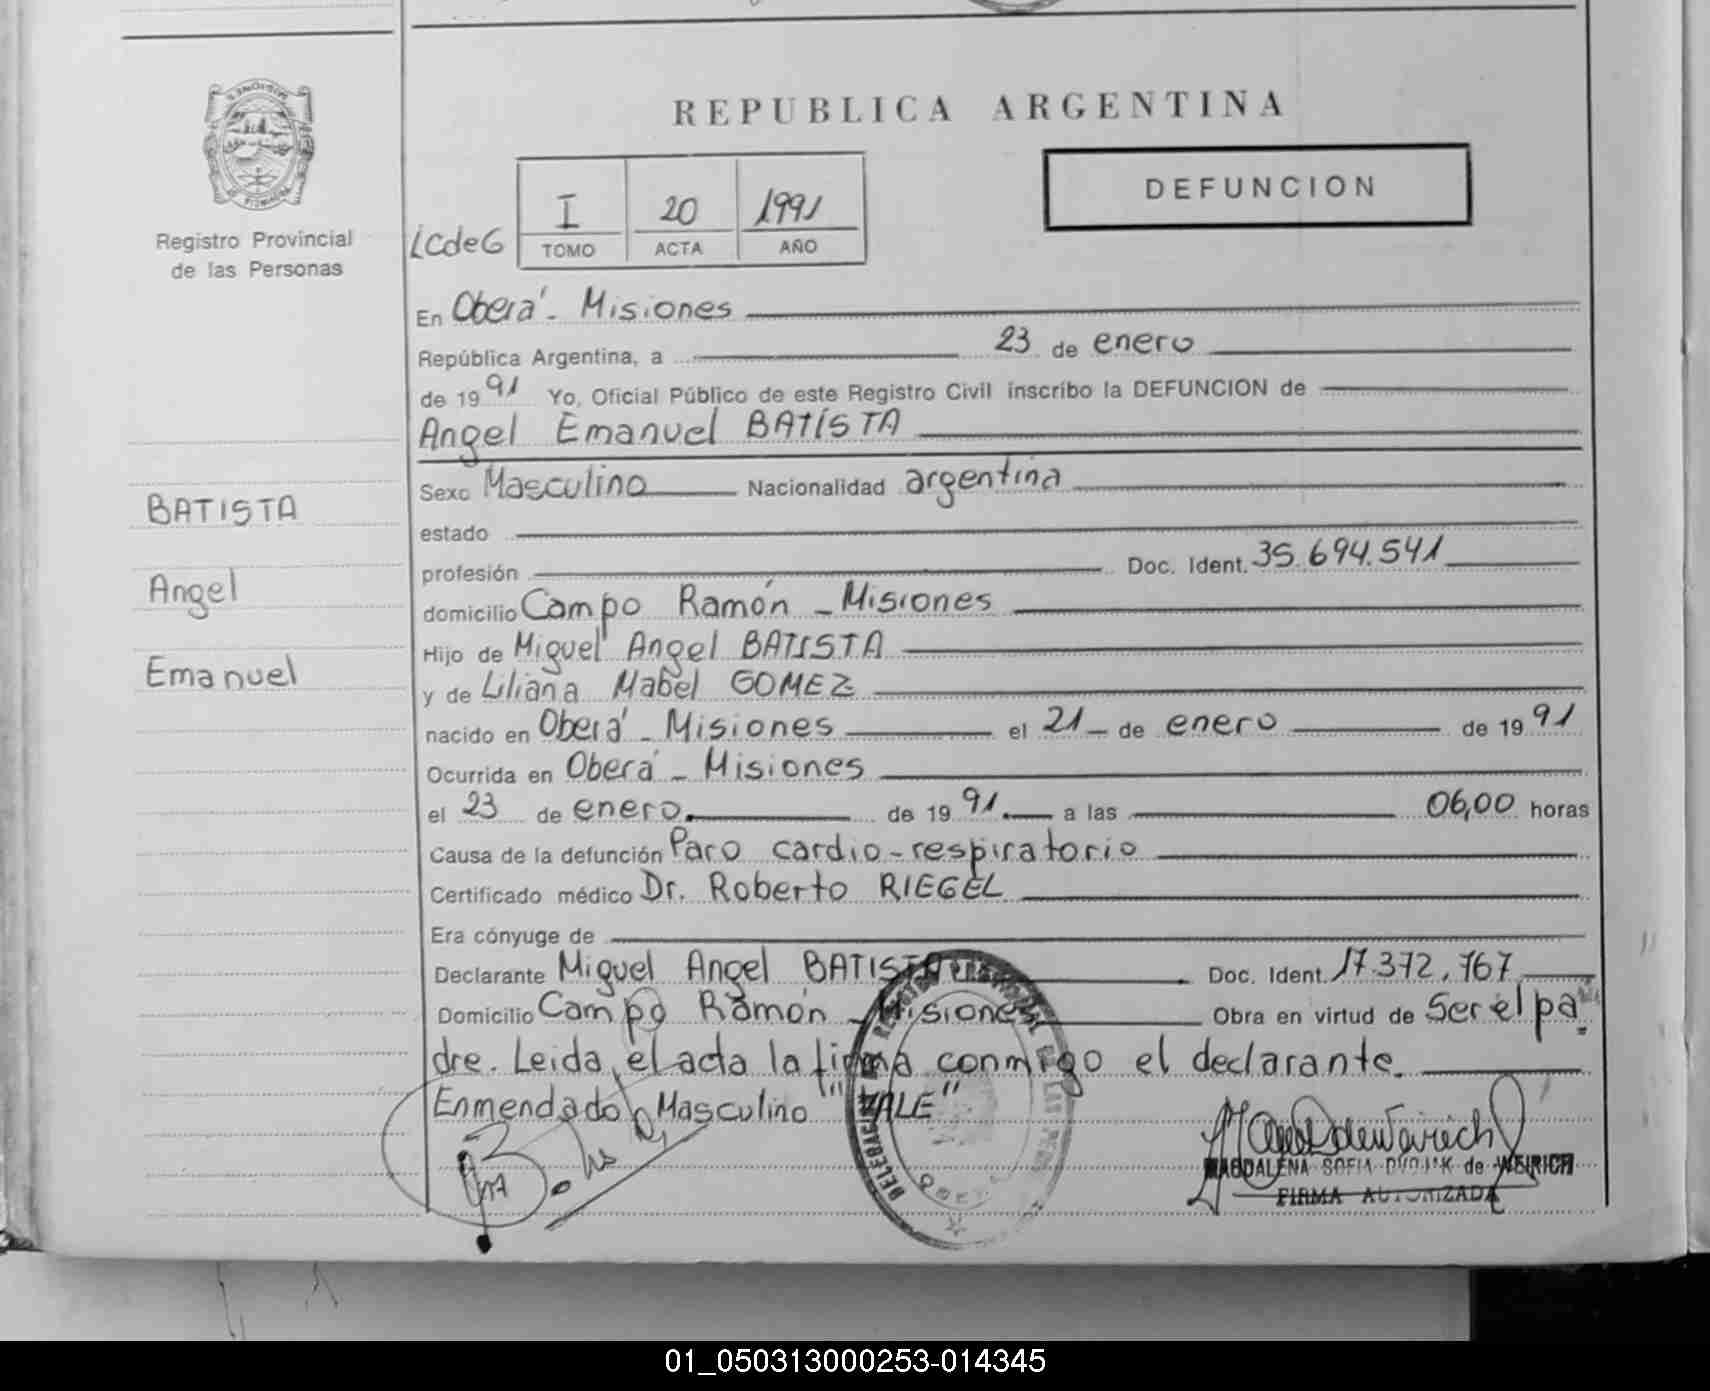 REPUBLICA ARGENTINA
DEFUNCION
Registro Provincial
de las Personas
LCdeG
I 20 1991
TOMO ACTA AÑO
En Oberá - Misiones
República Argentina, a 23 de enero
de 1991 Yo, Oficial Público de este Registro Civil inscribo la DEFUNCION de
Angel Emanuel BATISTA
Sexo Masculino Nacionalidad argentina
estado
profesión Doc. Ident. 35.694.541
domicilio Campo Ramón - Misiones
Hijo de Miguel Angel BATISTA
y de Liliana Mabel GOMEZ
nacido en Oberá - Misiones el 21 - de enero de 1991
Ocurrida en Oberá - Misiones
el 23 de enero. de 1991. a las 06,00 horas
Causa de la defunción Paro cardio-respiratorio
Certificado médico Dr. Roberto RIEGEL
Era cónyuge de
Declarante Miguel Angel BATISTA Doc. Ident. 17.372.767
Domicilio Campo Ramón - Misiones Obra en virtud de Ser el pa
dre. Leida el acta la firma conmigo el declarante.
Enmendado Masculino "VALE"
BATISTA
Angel
Emanuel
MAGDALENA SOFIA DVOJAK de WEIRICH
FIRMA AUTORIZADA
01_050313000253-014345